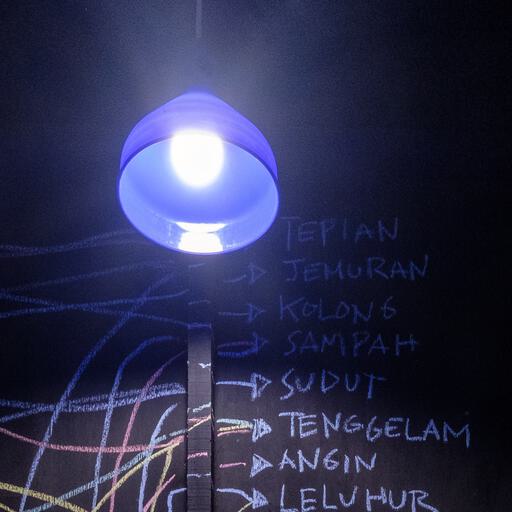 TEPIAN
JEMURAN
KOLONG
SAMPAH
SUDUT
TENGGELAM
ANGIN
LELUHUR